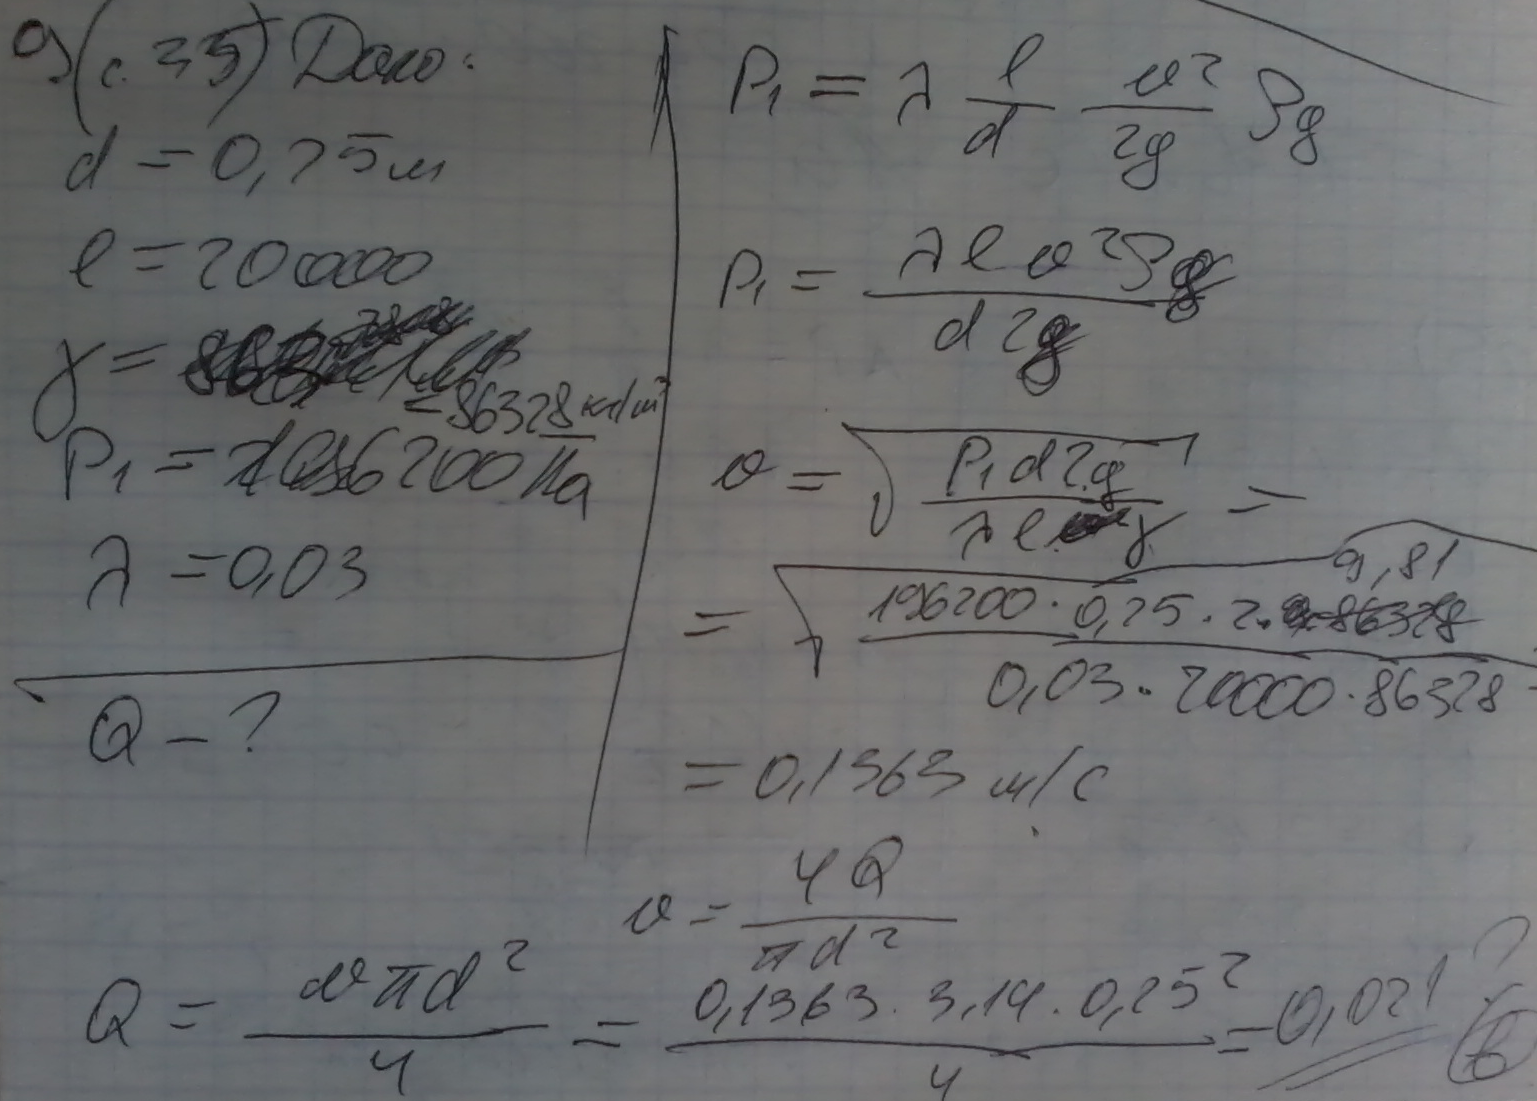 9) (с. 35) Дано:
d = 0,25м
l = 20000
γ =
= 86328 кг/м²
P₁ = 196200 Па
λ = 0,03
Q - ?
P₁ = λ l/d v²/2g ρg
P₁ = λ l v² ρg / d 2g
v = √(P₁ d 2g / λ l γ) =
= √(196200 · 0,25 · 2 · 9,81 / 0,03 · 20000 · 86328) =
= 0,1363 м/с
v = 4Q / πd²
Q = vπd² / 4 = 0,1363 · 3,14 · 0,25² / 4 = 0,021 ?